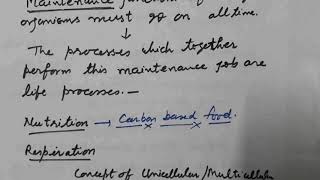 Maintenance
organisms must go on all time.
↓
The processes which together
perform this maintenance job are
life processes.—
Nutrition → Carbon based food.
Respiration
Concept of Unicellular/Multicellular